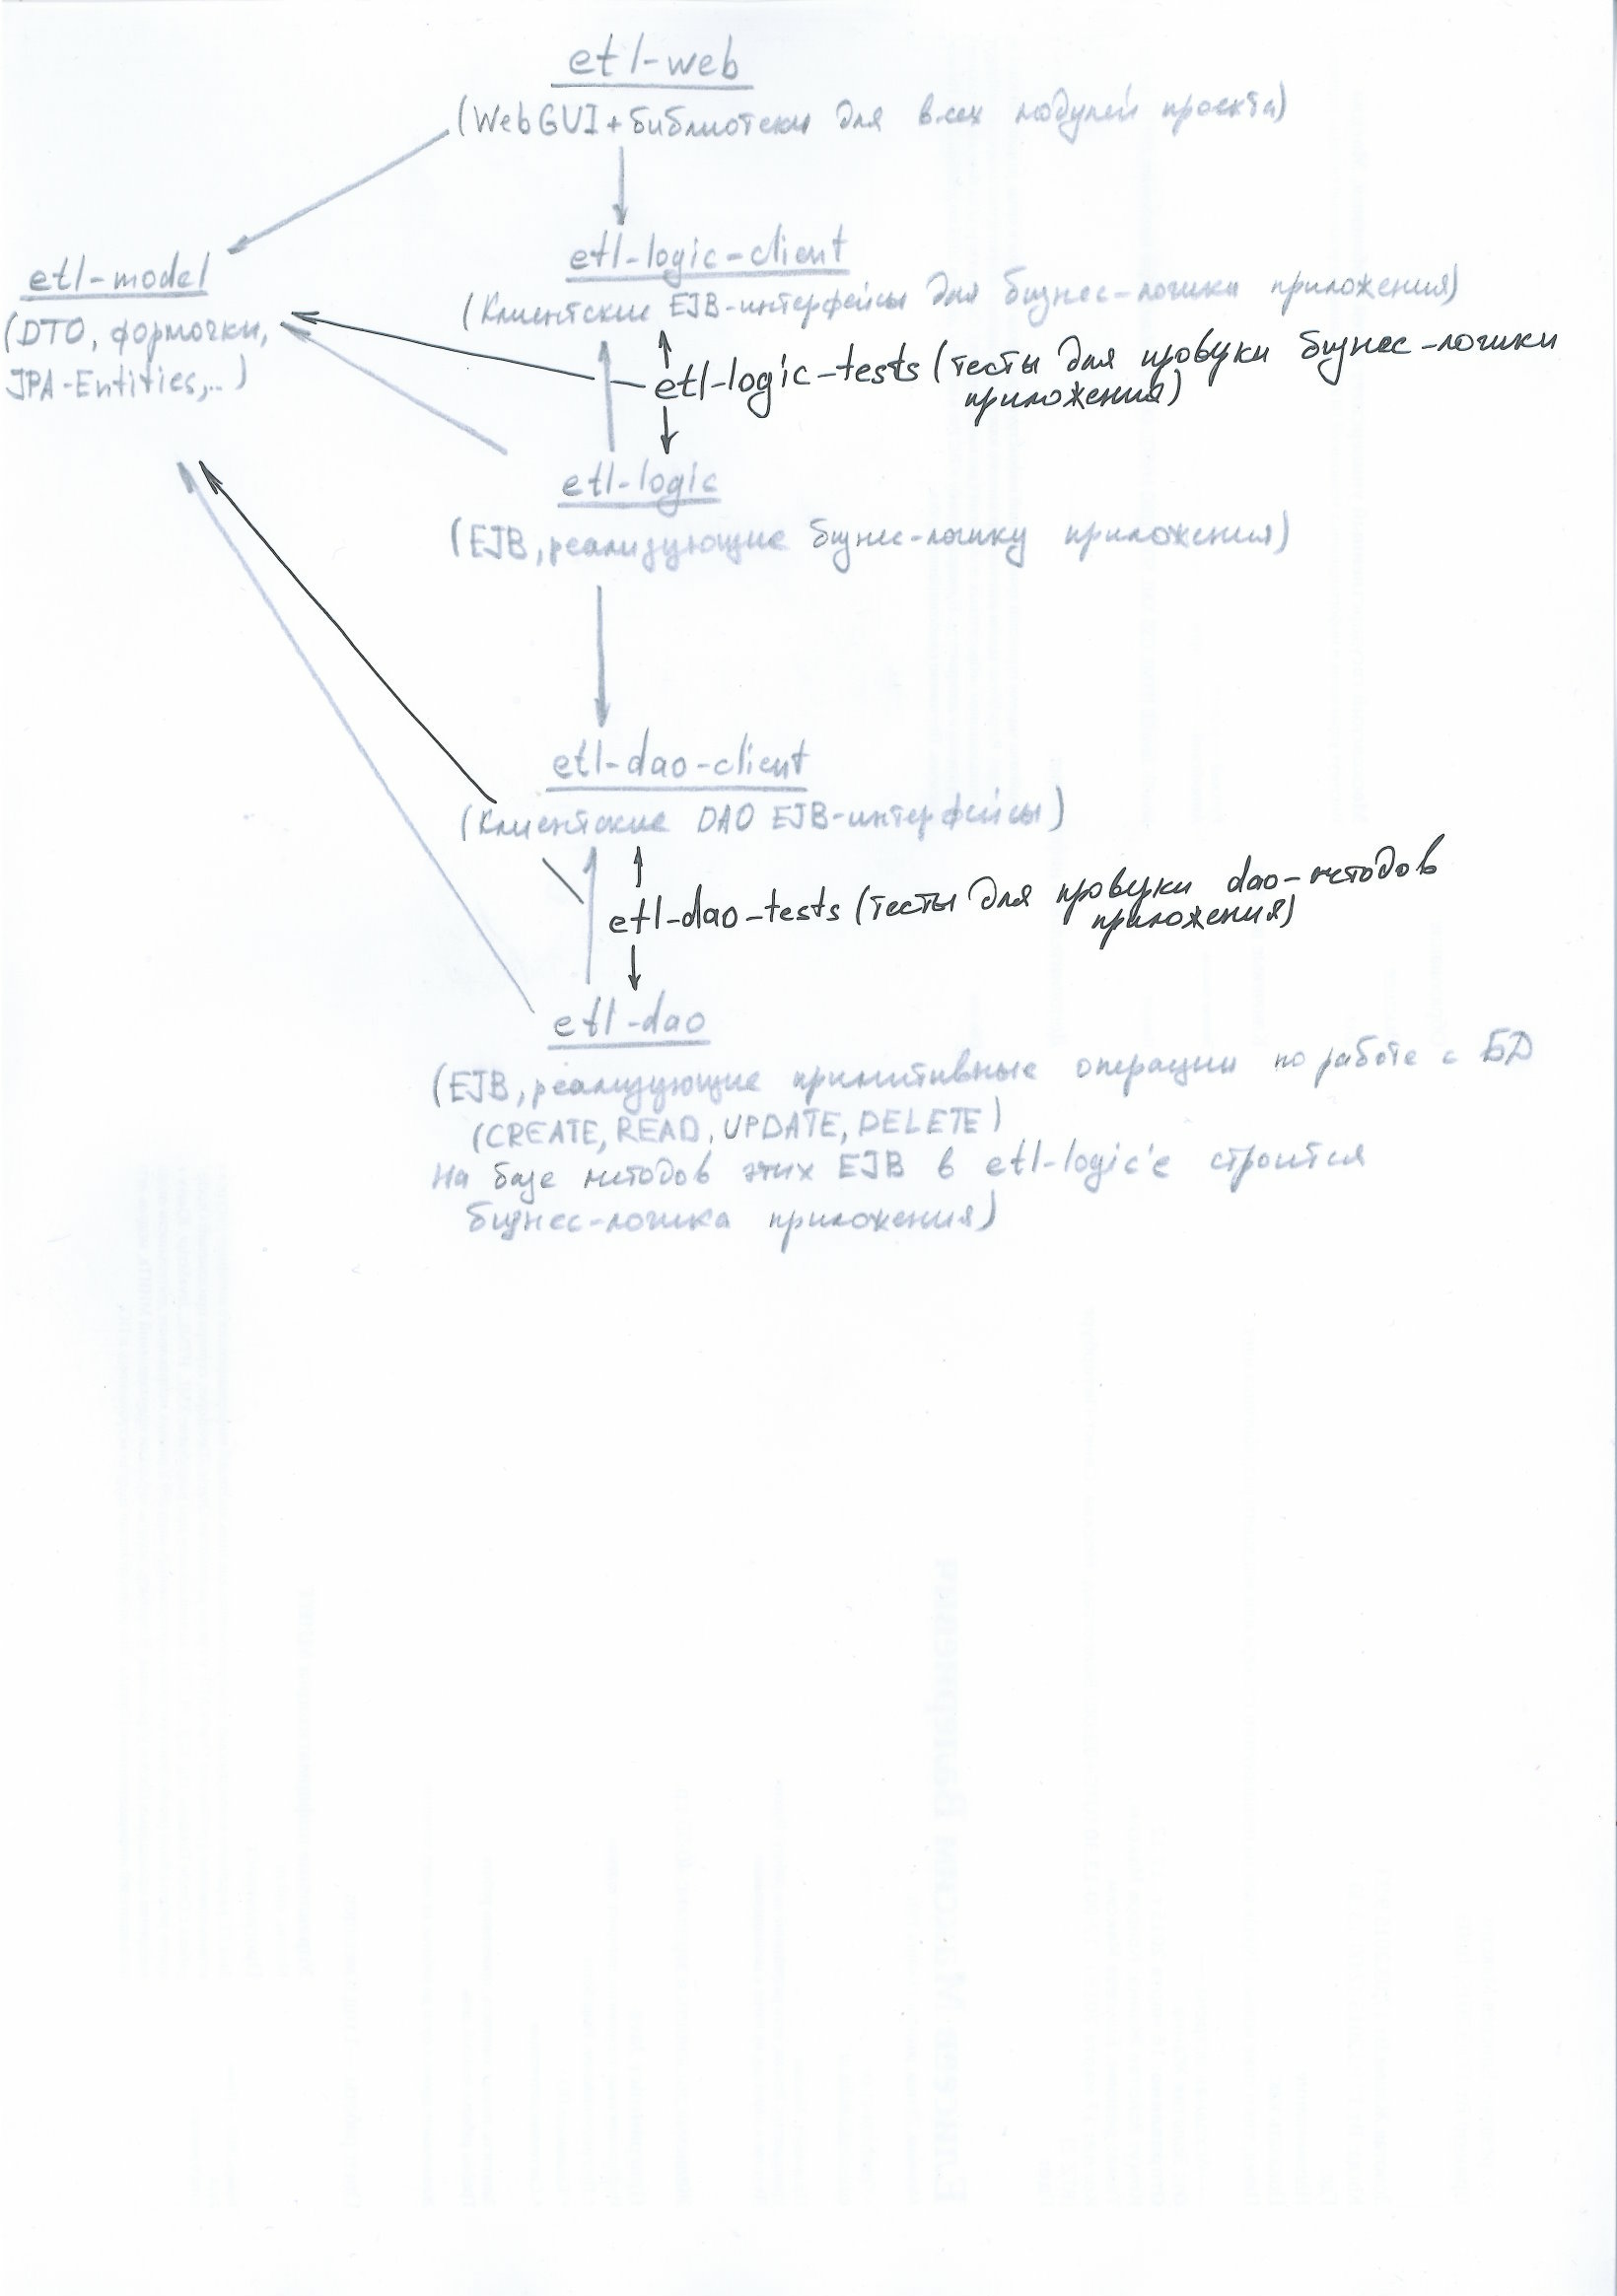 etl-web
(WebGUI + библиотеки для всех модулей проекта)
etl-logic-client
(Клиентские EJB-интерфейсы для бизнес-логики приложения)
etl-model
(DTO, формочки,
JPA-Entities,..)
etl-logic-tests (тесты для проверки бизнес-логики
приложения)
etl-logic
(EJB, реализующие бизнес-логику приложения)
etl-dao-client
(Клиентские DAO EJB-интерфейсы)
etl-dao-tests (тесты для проверки dao-методов
приложения)
etl-dao
(EJB, реализующие примитивные операции по работе с БД
(CREATE, READ, UPDATE, DELETE)
На базе методов этих EJB в etl-logic'е строится
бизнес-логика приложения)